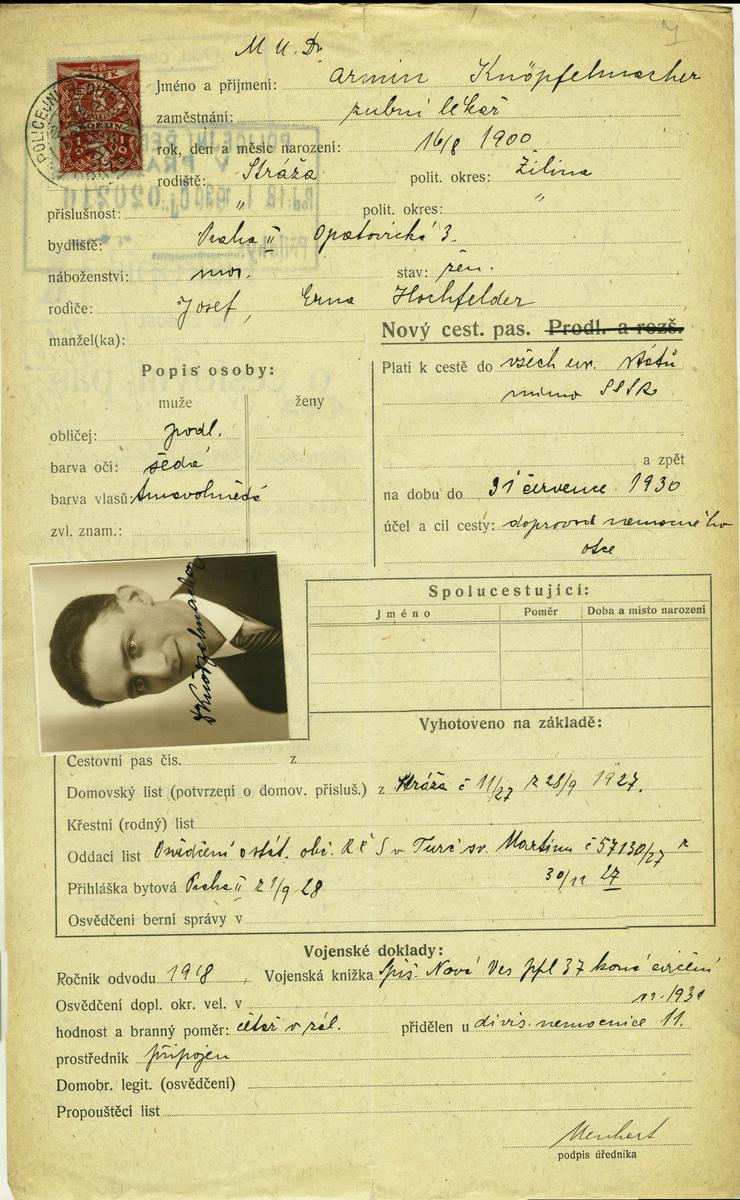 M U. Dr
Jméno a příjmení: Armin Knöpfelmacher
zaměstnání: zubní lékař
rok, den a měsíc narození: 16/8 1900
rodiště: Stráža polit. okres: Žilina
příslušnost: " polit. okres: "
bydliště: Praha II Opatovická 3.
náboženství: moj. stav: žen.
rodiče: Josef, Erna Hochfelder
manžel(ka):
Nový cest. pas. Prodl. a rozš.
Popis osoby:
muže ženy
obličej: podl.
barva očí: šedé
barva vlasů: tmavohnědé
zvl. znam.:
Platí k cestě do všech evr. států
mimo SSSR
a zpět
na dobu do 31 července 1930
účel a cíl cesty: doprovod nemocného
otce
POLICEJNÍ
Dr Knöpfelmacher
Spolucestující:
Jméno Poměr Doba a místo narození
Vyhotoveno na základě:
Cestovní pas čís. z
Domovský list (potvrzení o domov. přísluš.) z Stráža č 11/27 z 28/9 1927.
Křestní (rodný) list
Oddací list Osvědčení o stát. obč. R Č S v Turč. sv. Martinu č 57130/27 z
30/11 27
Přihláška bytová Praha II z 1/9 28
Osvědčení berní správy v
Vojenské doklady:
Ročník odvodu 1918, Vojenská knížka Spiš. Nová Ves ppl 37 koná cvičení
Osvědčení dopl. okr. vel. v 1930
hodnost a branný poměr: četař v zál. přidělen u divis. nemocnice 11.
prostředník připojen
Domobr. legit. (osvědčení)
Propouštěcí list
podpis úředníka